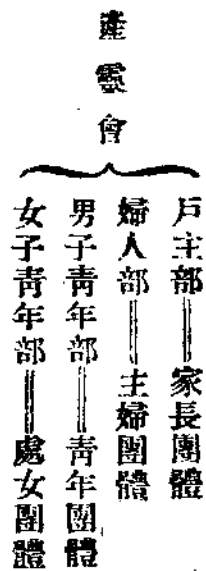 產靈會
戶主部＝家長團體
婦人部＝主婦團體
男子靑年部＝靑年團體
女子靑年部＝處女團體